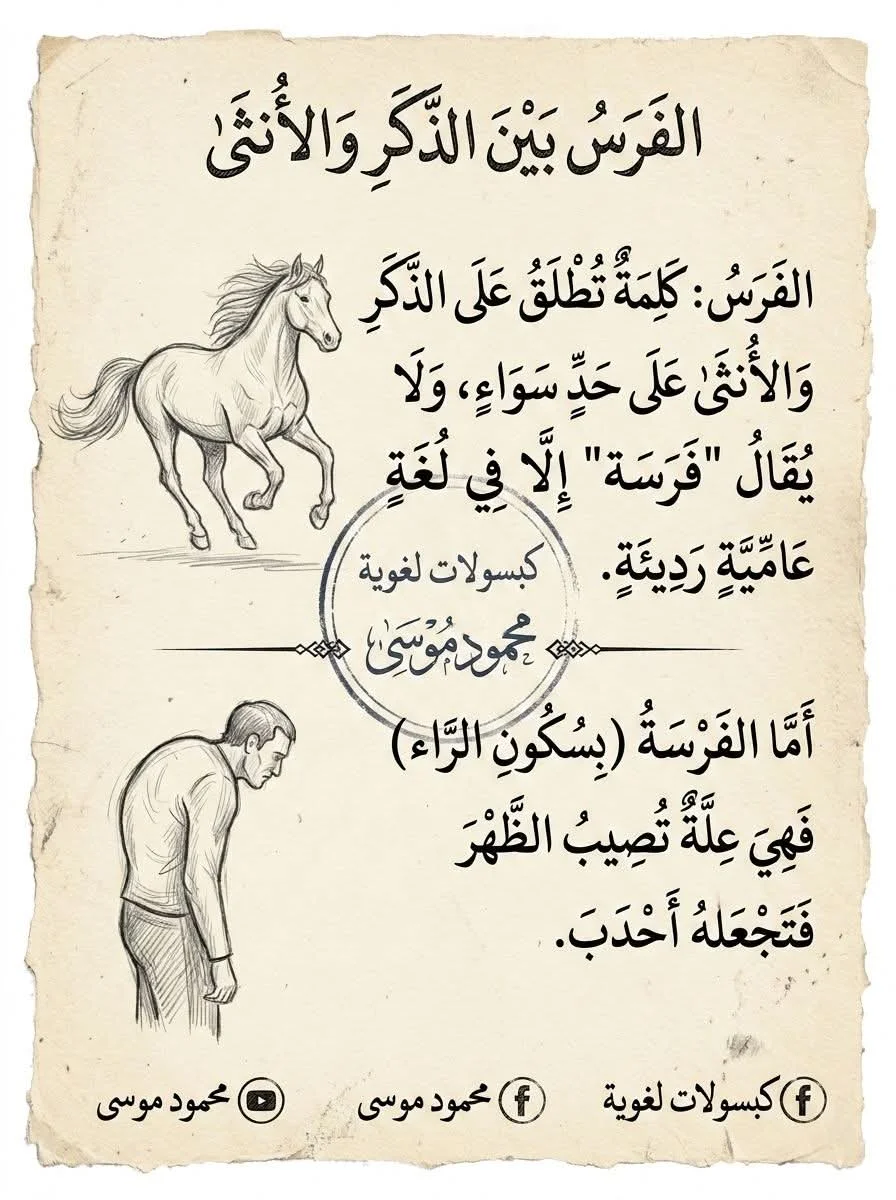 الفَرَسُ بَيْنَ الذَّكَرِ وَالأُنثَىٰ
الفَرَسُ: كَلِمَةٌ تُطْلَقُ عَلَى الذَّكَرِ
وَالأُنثَىٰ عَلَى حَدٍّ سَوَاءٍ، وَلَا
يُقَالُ "فَرَسَة" إِلَّا فِي لُغَةٍ
عَامِّيَّةٍ رَدِيئَةٍ.
كبسولات لغوية
محمود مُوْسَىٰ
أَمَّا الفَرْسَةُ (بِسُكُونِ الرَّاء)
فَهِيَ عِلَّةٌ تُصِيبُ الظَّهْرَ
فَتَجْعَلهُ أَحْدَبَ.
كبسولات لغوية
محمود موسى
محمود موسى